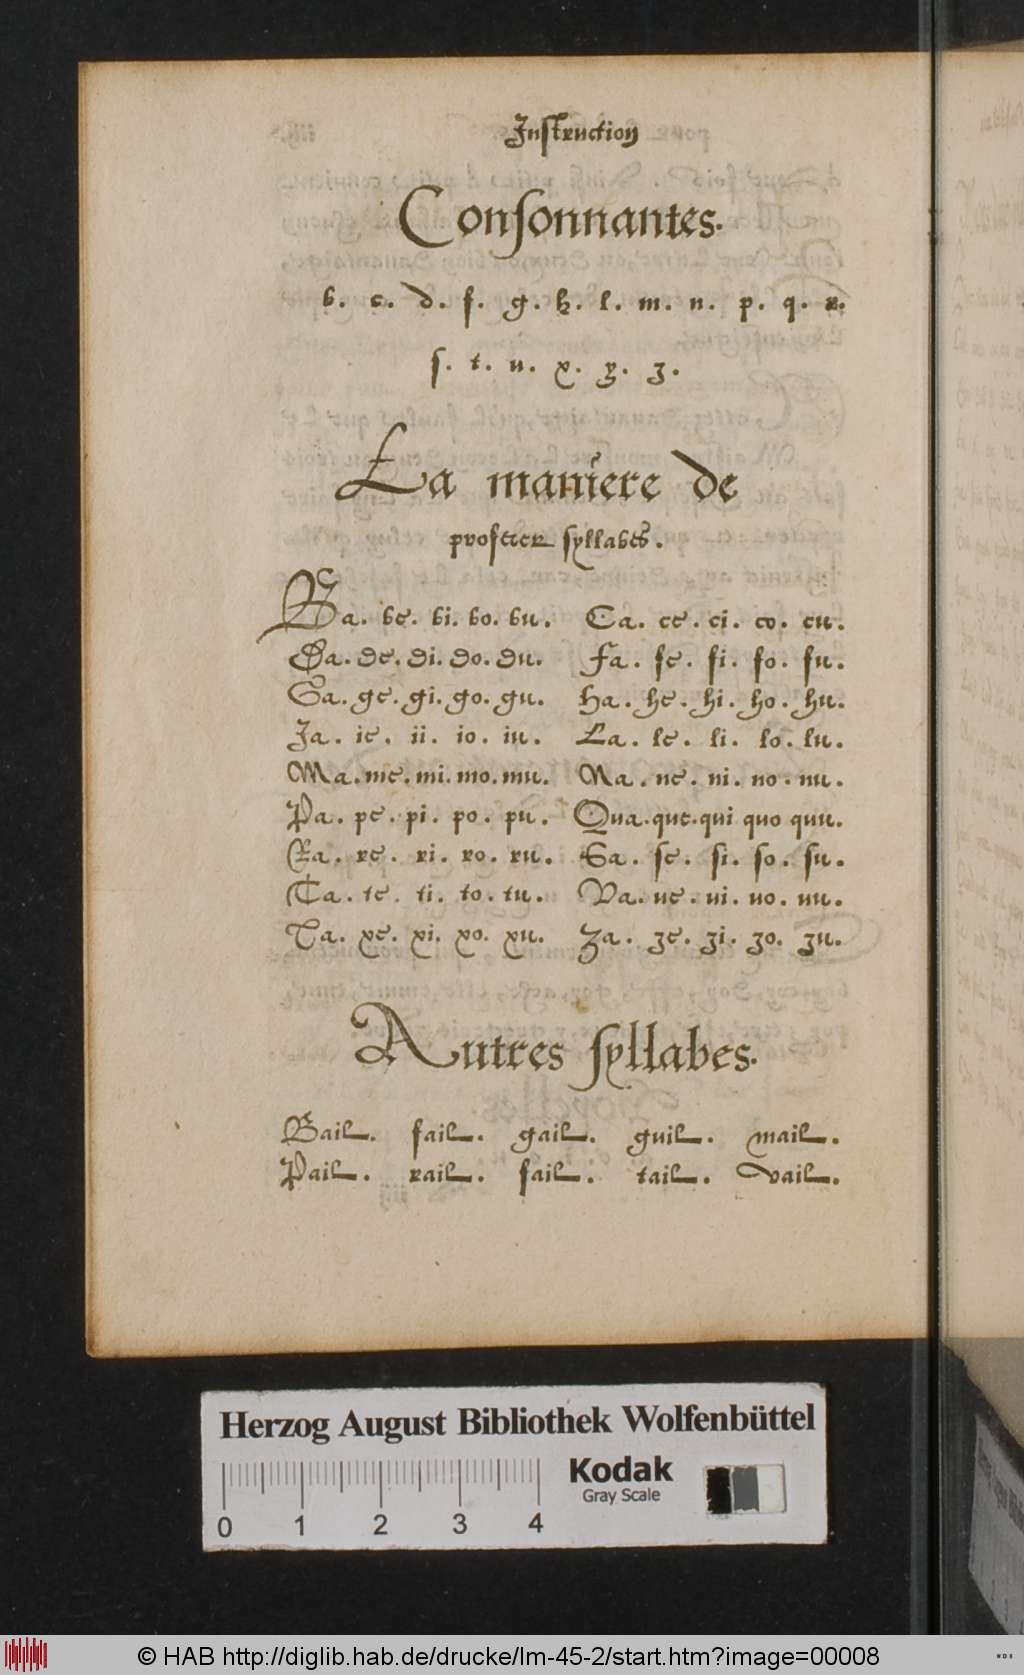 Instruction
Consonnantes.
b. c. d. f. g. h. l. m. n. p. q. r.
s. t. u. x. y. z.
La maniere de
proferer syllabes.
Ba. be. bi. bo. bu. Ca. ce. ci. co. cu.
Da. de. di. do. du. Fa. fe. fi. fo. fu.
Ga. ge. gi. go. gu. Ha. he. hi. ho. hu.
Ja. ie. ii. io. iu. La. le. li. lo. lu.
Ma. me. mi. mo. mu. Na. ne. ni. no. nu.
Pa. pe. pi. po. pu. Qua. que. qui quo quu.
Ra. re. ri. ro. ru. Sa. se. si. so. su.
Ta. te. ti. to. tu. Va. ue. ui. uo. uu.
Xa. xe. xi. xo. xu. Za. ze. zi. zo. zu.
Autres syllabes.
Bail. fail. gail. guil. mail.
Pail. rail. sail. tail. vail.
Herzog August Bibliothek Wolfenbüttel
Kodak
Gray Scale
0 1 2 3 4
© HAB http://diglib.hab.de/drucke/lm-45-2/start.htm?image=00008